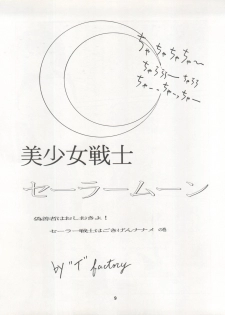 ちゃちゃちゃ〜
ちゃららー ちゃらら
ちゃーっちゃー
美少女戦士
セーラームーン
偽善者はおしおきよ!
セーラー戦士はごきげんナナメ の巻
by "T" factory
9